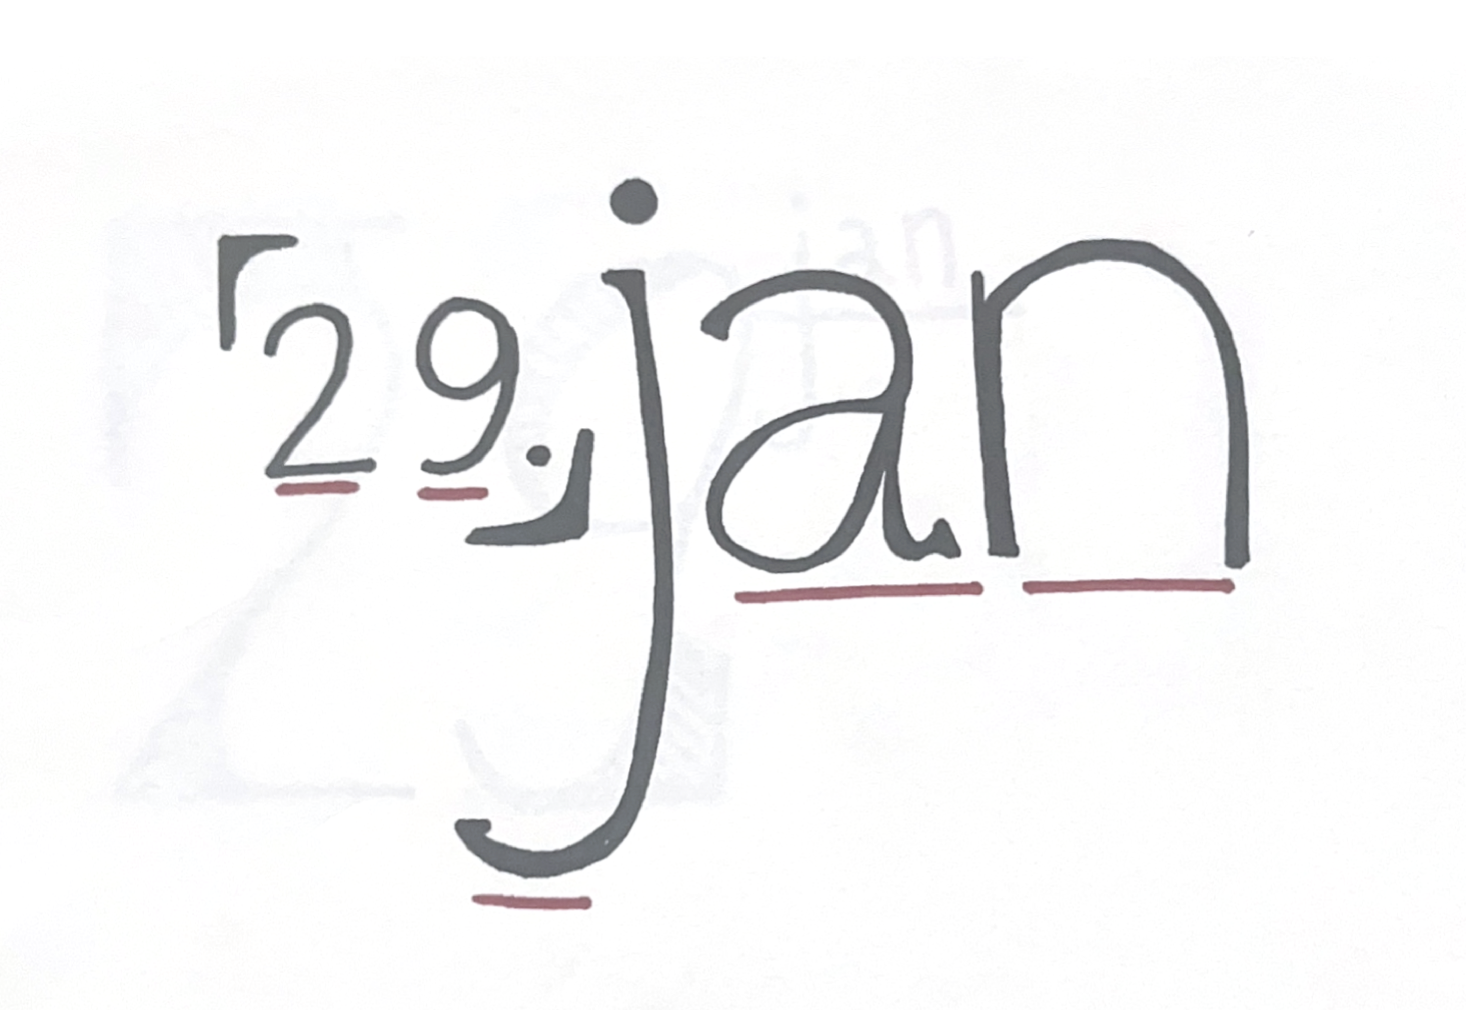 「29.」jan